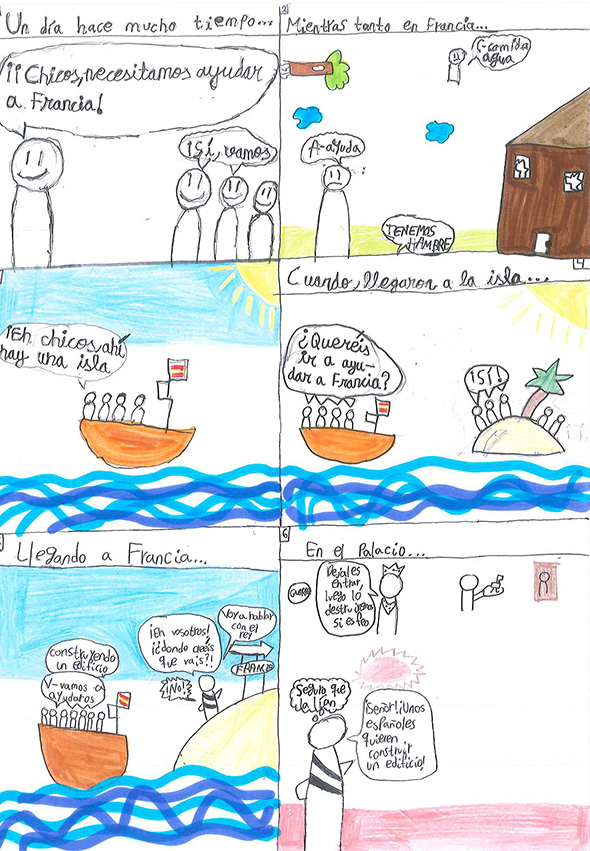 Un día hace mucho tiempo...
¡¡Chicos, necesitamos ayudar
a Francia!
¡Sí, vamos
2
Mientras tanto en Francia...
C-comida
agua
A-ayuda
TENEMOS
HAMBRE
¡Eh chicos, ahí
hay una isla
4
Cuando, llegaron a la isla...
¿Queréis
ir a ayu-
dar a Francia?
¡SÍ!
Llegando a Francia...
construyendo
un edificio
V-vamos a
ayudaros
¡Eh vosotros!
¡¿donde creéis
que vais?!
¡NO!
Voy a hablar
con el
rey
6
En el Palacio...
Dejales
entrar,
luego lo
si es feo
Seguro que
la lían
¡Señor! ¡Unos
españoles
quieren
construir
un edificio!